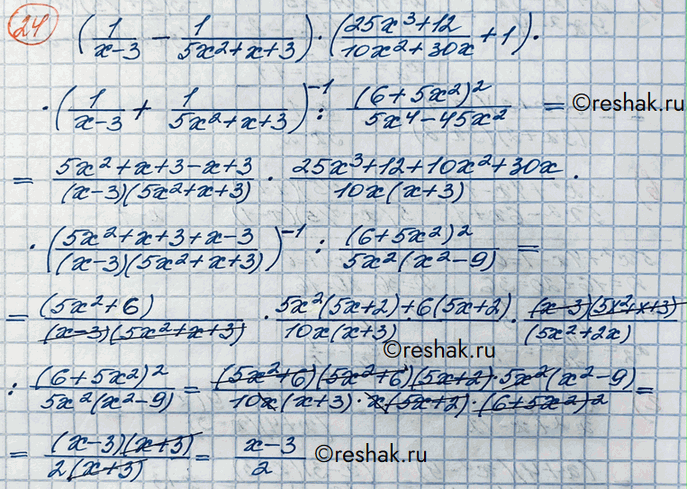 24 (1/(x-3) - 1/(5x²+x+3)) · ((25x³+12)/(10x²+30x) + 1) ·
· (1/(x-3) + 1/(5x²+x+3))⁻¹ : (6+5x²)²/(5x⁴-45x²) = ©reshak.ru
= (5x²+x+3-x+3)/((x-3)(5x²+x+3)) · (25x³+12+10x²+30x)/(10x(x+3)) ·
· ((5x²+x+3+x-3)/((x-3)(5x²+x+3)))⁻¹ : (6+5x²)²/(5x²(x²-9)) =
= (5x²+6)/((x-3)(5x²+x+3)) · (5x²(5x+2)+6(5x+2))/(10x(x+3)) · (x-3)(5x²+x+3)/(5x²+2x)
©reshak.ru
: (6+5x²)²/(5x²(x²-9)) = (5x²+6)(5x²+6)(5x+2)·5x²(x²-9)/(10x(x+3)·x(5x+2)·(6+5x²)²) =
= (x-3)(x+3)/(2(x+3)) = (x-3)/2 ©reshak.ru